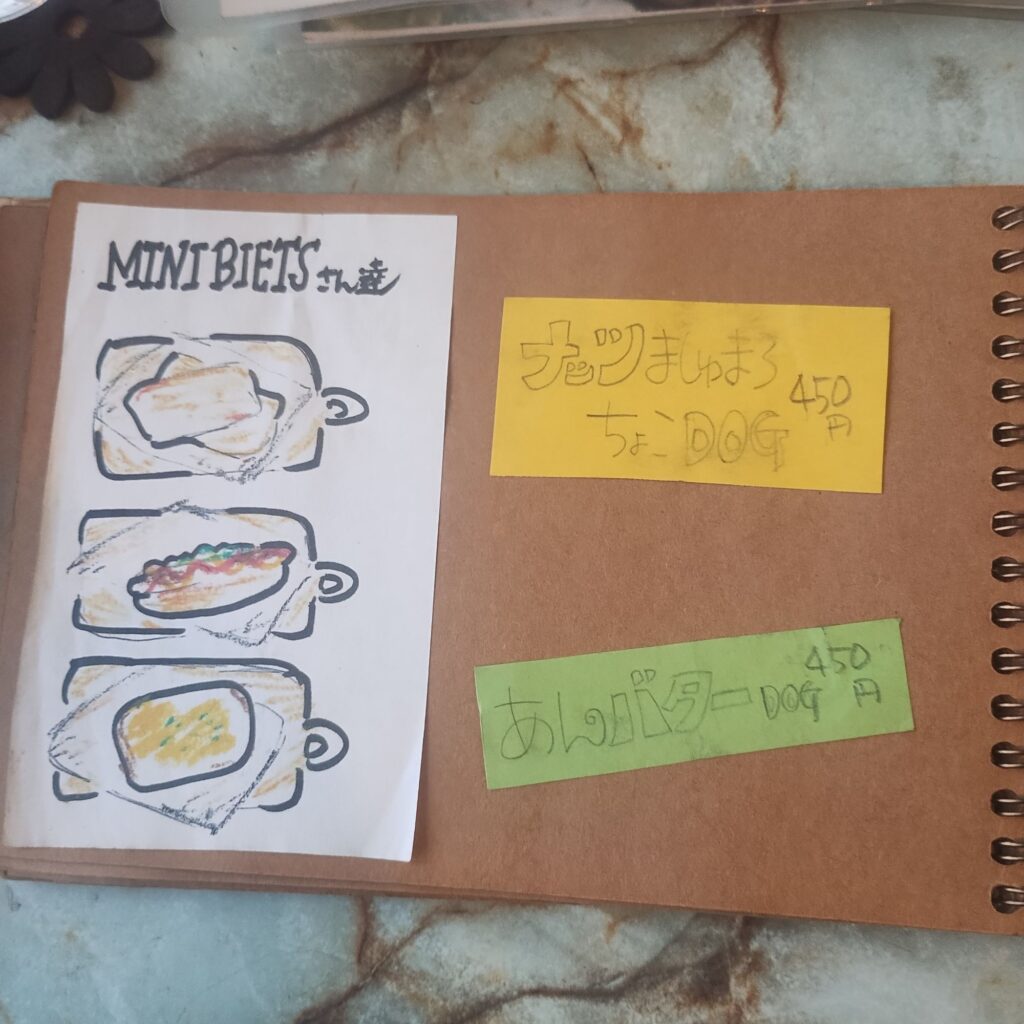 MINI BIETSさん達
ナッツましゅまろ
ちょこDOG
450
円
あんバターDOG
450
円